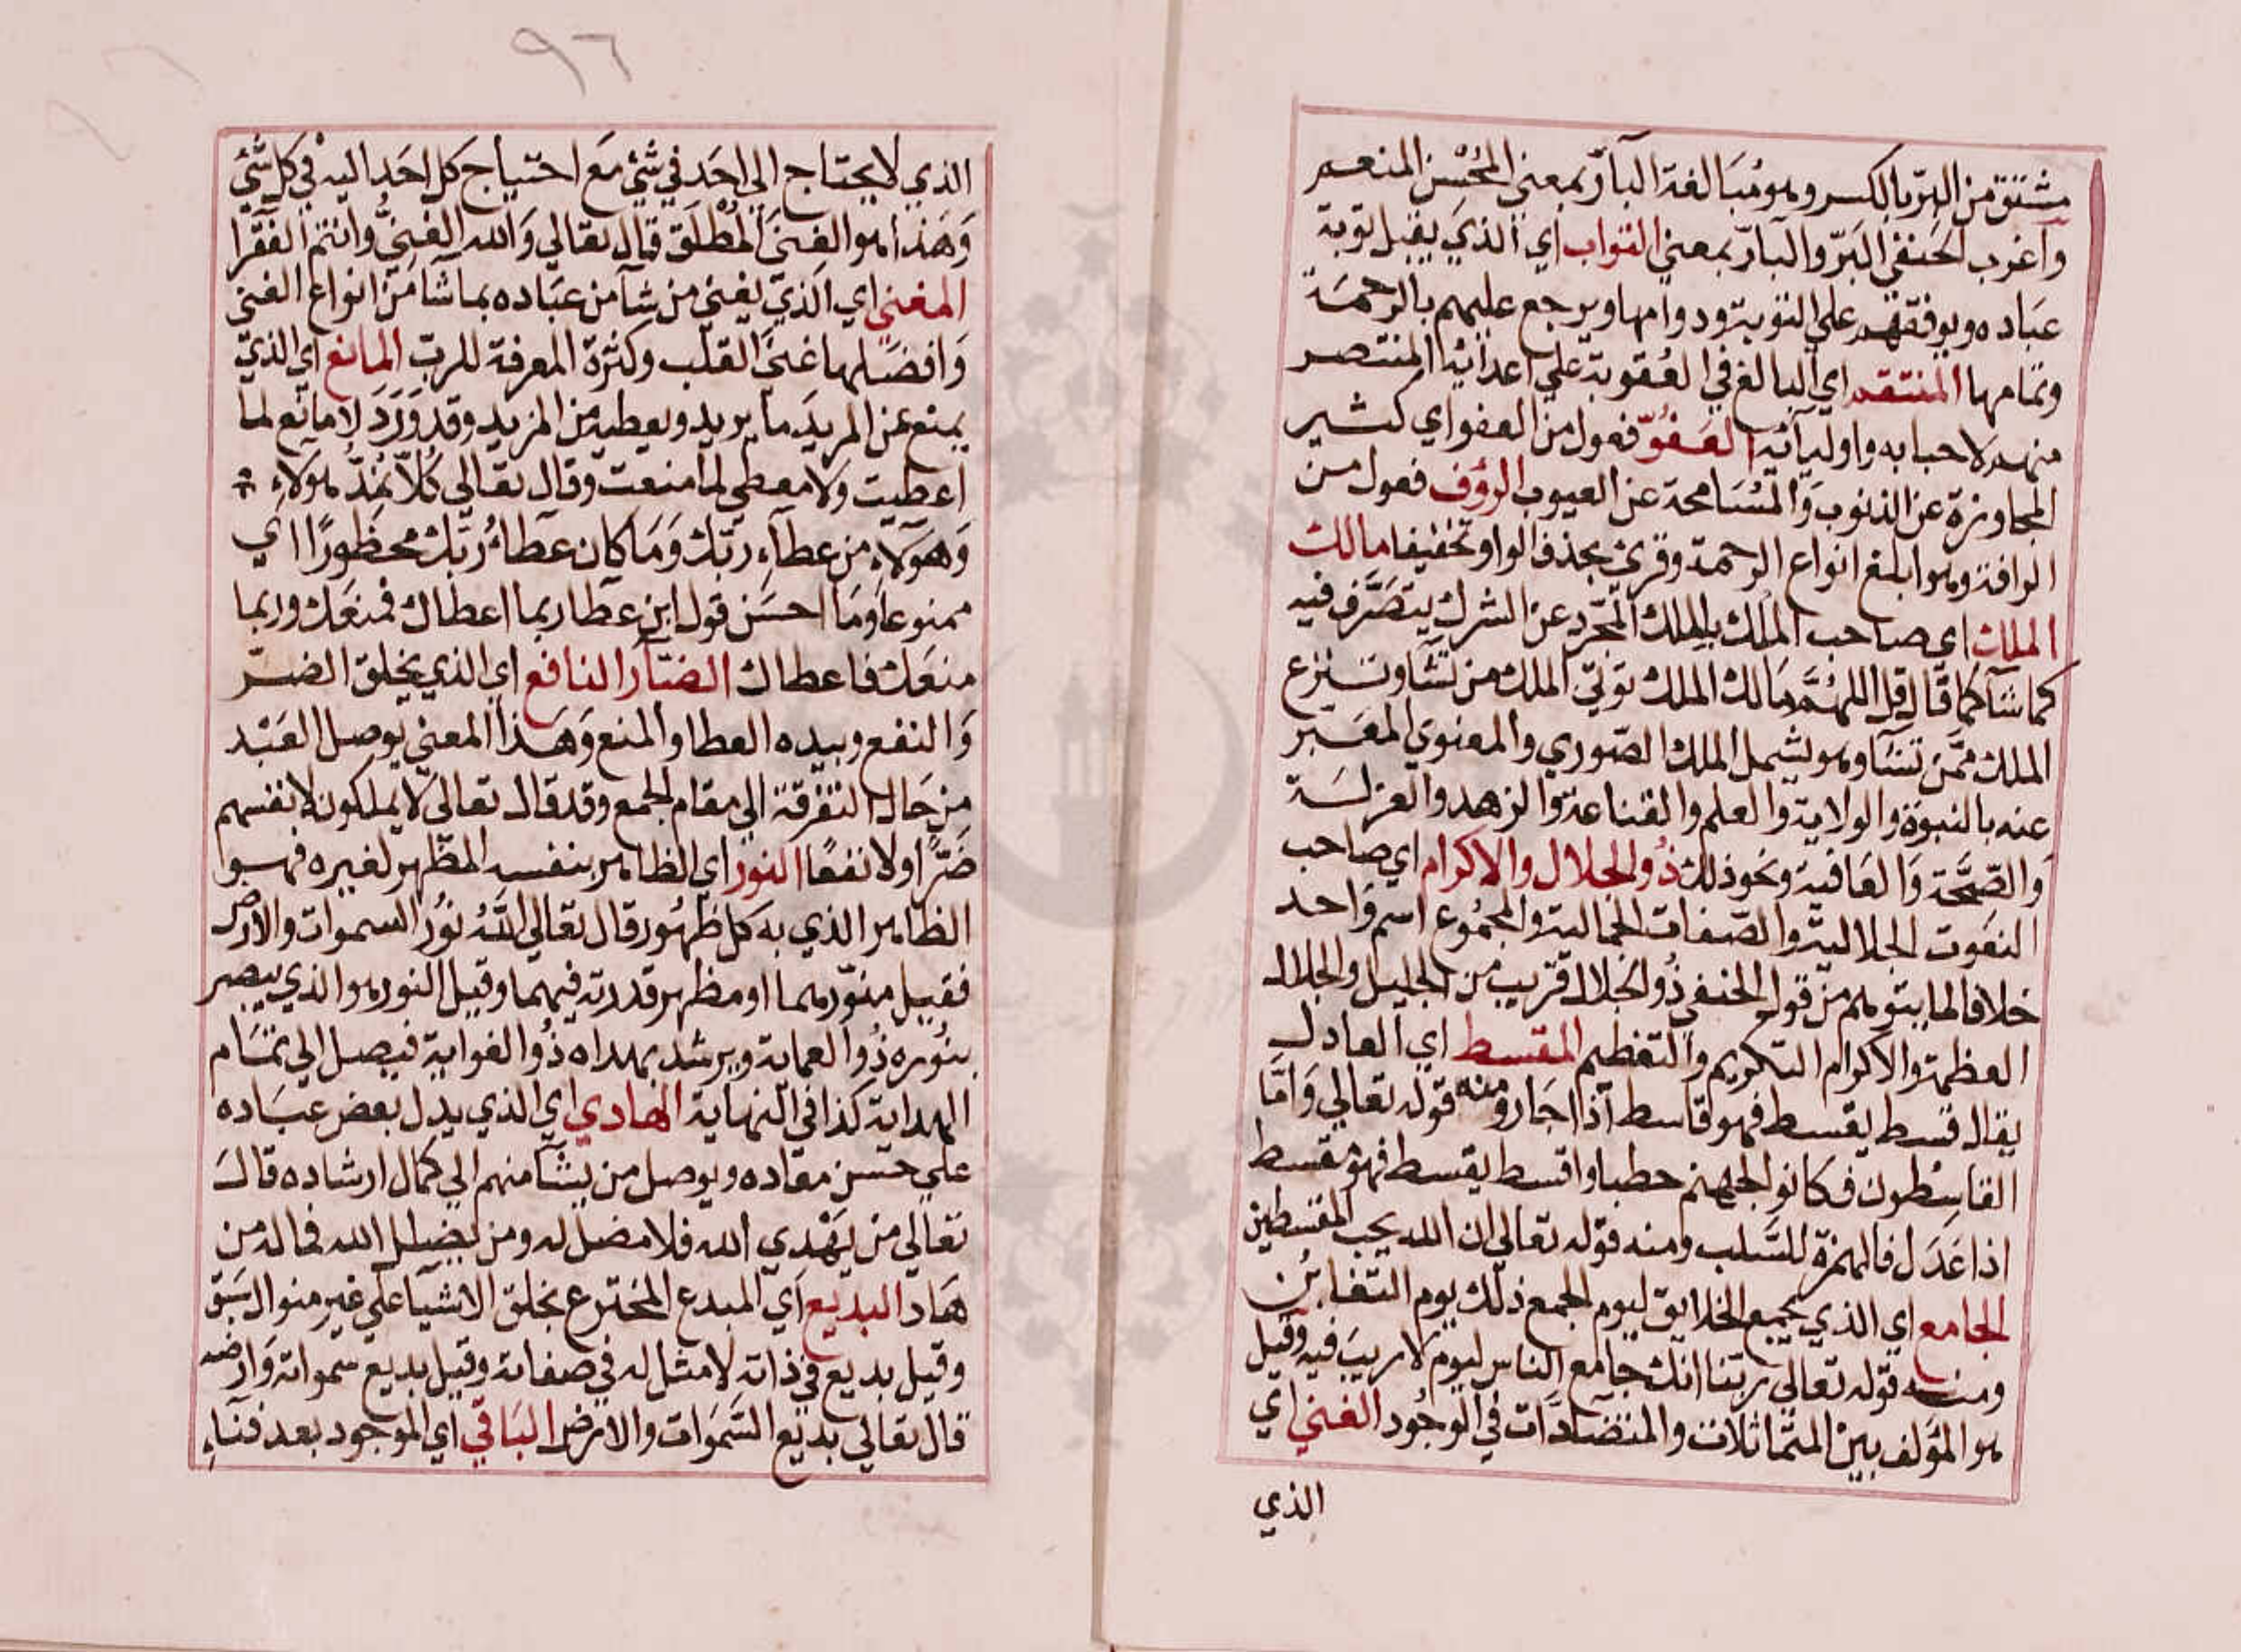 مشتق من البرّ بالكسر وهو مُبَالغة البآرّ بمعني المُحْسِن المنعم
وآغرب الحَنفي البَرّ والبارّ بمعني التواب اي الذيَ يقبل توبة
عبَاده ويوفقهم علي التوبة ودوامها ويرجع عليهم بالرحمَة
وتمامها المنتقم اي البالغ في العُقوبة علي اعدآئه المنتصر
منهم لاحبابه واوليآئه العَفُوّ فعول من العفو اي كثير
المجاوزة عن الذنوب وَالمُسَامحة عن العيوب الرؤف فعول من
الرافة وهو ابلغ انواع الرحمة وقرئ بحذف الواو تخفيفا مالك
الملك اي صاحب المُلك بالملك المجّرد عن الشرك يتصَرَّف فيه
كما شآ كما قال قل اللهُمَّ مَالك الملك توتي الملك من تشَا وتنزع
الملك ممَّن تشَآ وهو يشمل الملك الصّوري والمعنوي المعَبر
عنه بالنبوة والولاية والعلم والقناعة والزهد والعزلَة
وَالصِّحَّة وَالعَافية ونحو ذلك ذُو الجلال والاكرام اي صاحب
النعَوت الجلالية والصّفات الجمالية والمجمُوع اسم وَاحد
خلافا لما يتوهم من قول الحنفي ذُو الجلال قريب من الجليل والجلال
العظمة والاكرام التكريم وَالتعَظيم المقسط اي العادل
يقال قسط يقسط فهو قاسط آذا اجَار ومنه قوله تعالي وَامَّا
القاسطون فكانو الجهنم حطبا واقسط يقسط فهو مُقسط
اذا عَدَل فالهمزة للسَّلب ومنه قوله تعالي ان الله يحب المقسطين
الجامع اي الذي يجمع الخلايق ليوم الجمع ذلك يوم التغابُن
ومنه قوله تعالي ربّنا انك جامع الناس ليوم لا ريبَ فيه وَقيل
هو المؤلف بين المتماثلات والمتضآدَات في الوجُود الغني اي
الذي
٩٦
الذي لا يحتاج الي احَد في شئ مَع احتياج كل احَد اليه في كل شئ
وَهَذا هو الغنيَ المُطلَق قال تعَالي وَالله الغَنيُّ وانتم الفقرا
المغني اي الذيّ يغني من شآ من عبَاده بما شآ مَن انواع الغني
وَافضَلها غنيَ القلب وكثرَة المعرفة للرب المانع اي الذيّ
يمنع عن المريدَ ما يريد ويعطيه من المزيد وقد وَرَدَ لا مانع لما
اعطيت ولا معطي لما منعت وقال تعَالي كُلاّ نمُدّ هولاء
وَهَولآءِ من عطآءِ ربّك وَمَا كان عطاءُ رَبّك محظورًا اي
ممنوعا وَمَا احسَن قول ابن عطا ربما اعطاك فمنعَك وربما
منعَك فاعطاك الضآر النافع اي الذي يخلق الضر
وَالنفع وبيده العطا والمنع وَهَذا المعني يوصل العَبْد
من حَال التفرقة الي مقام الجمع وقد قال تعالي لا يملكون لانفسهم
ضَرًّا ولا نفعًا النور اي الظاهر بنفسه المظهر لغيره فهوا
الظاهر الذي به كل ظهُور قال تعَالي اللهُ نوُر السموات والارض
فقيل منوّرهما او مظهر قدرته فيهما وقيل النور هو الذي يبصر
بنُوره ذُوا العماية ويرشد بهداه ذُوا الغواية فيصل الي تمَام
الهداية كذا في النهاية الهادي اي الذي يدل بعض عبَاده
علي حسن معَاده ويوصل من يشآ منهم الي كمال ارشاده قال
تعَالي من يَهْدي الله فلا مضل له ومن يضلل الله فماله من
هَاد البديع اي المبدع المخترع بخلق الاشيا علي غير منوال سَبق
وقيل بديع في ذاته لا مثل له في صفاته وقيل بديع سموات وَارضه
قال تعَالي بديع السَّمَوات والارض البَاقي اي الموجود بعد فنآءِ